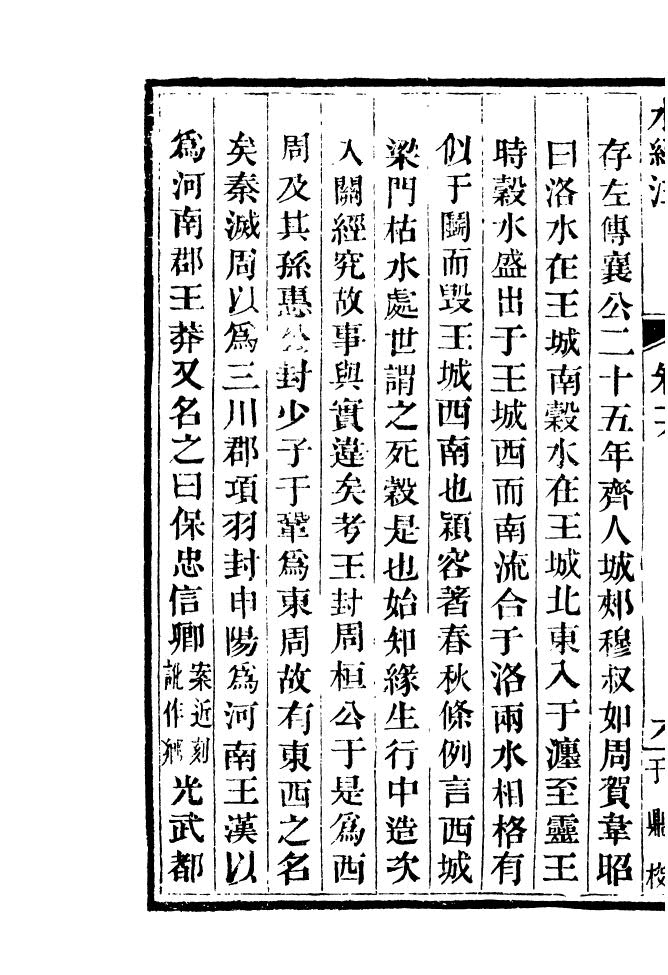 水經注
卷十六
存左傳襄公二十五年齊人城郟穆叔如周賀韋昭
曰洛水在王城南穀水在王城北東入于瀍至靈王
時穀水盛出于王城西而南流合于洛兩水相格有
似于鬭而毀王城西南也頴容著春秋條例言西城
梁門枯水處世謂之死穀是也始知緣生行中造次
入關經究故事與實違矣考王封周桓公于是爲西
周及其孫惠公封少子于鞏爲東周故有東西之名
矣秦滅周以爲三川郡項羽封申陽爲河南王漢以
爲河南郡王莽又名之曰保忠信卿
案近刻
訛作鄉
光武都